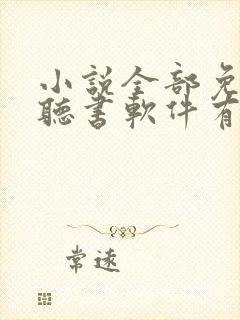 小說全部免
聽書軟件有
常遠